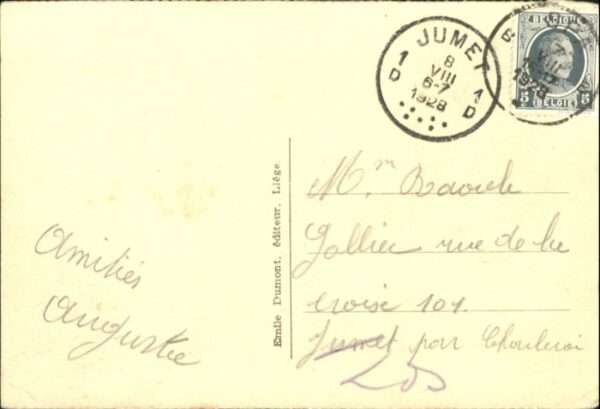 JUMET
1 D
8
VIII
6-7
1928
1 D
BELGIQUE
5 5
BELGIË
7
VIII
1928
Mr.
Gallier rue de la
croise 101
Jumet par Charleroi
Amitiés
Auguste
Emile Dumont, éditeur, Liège.